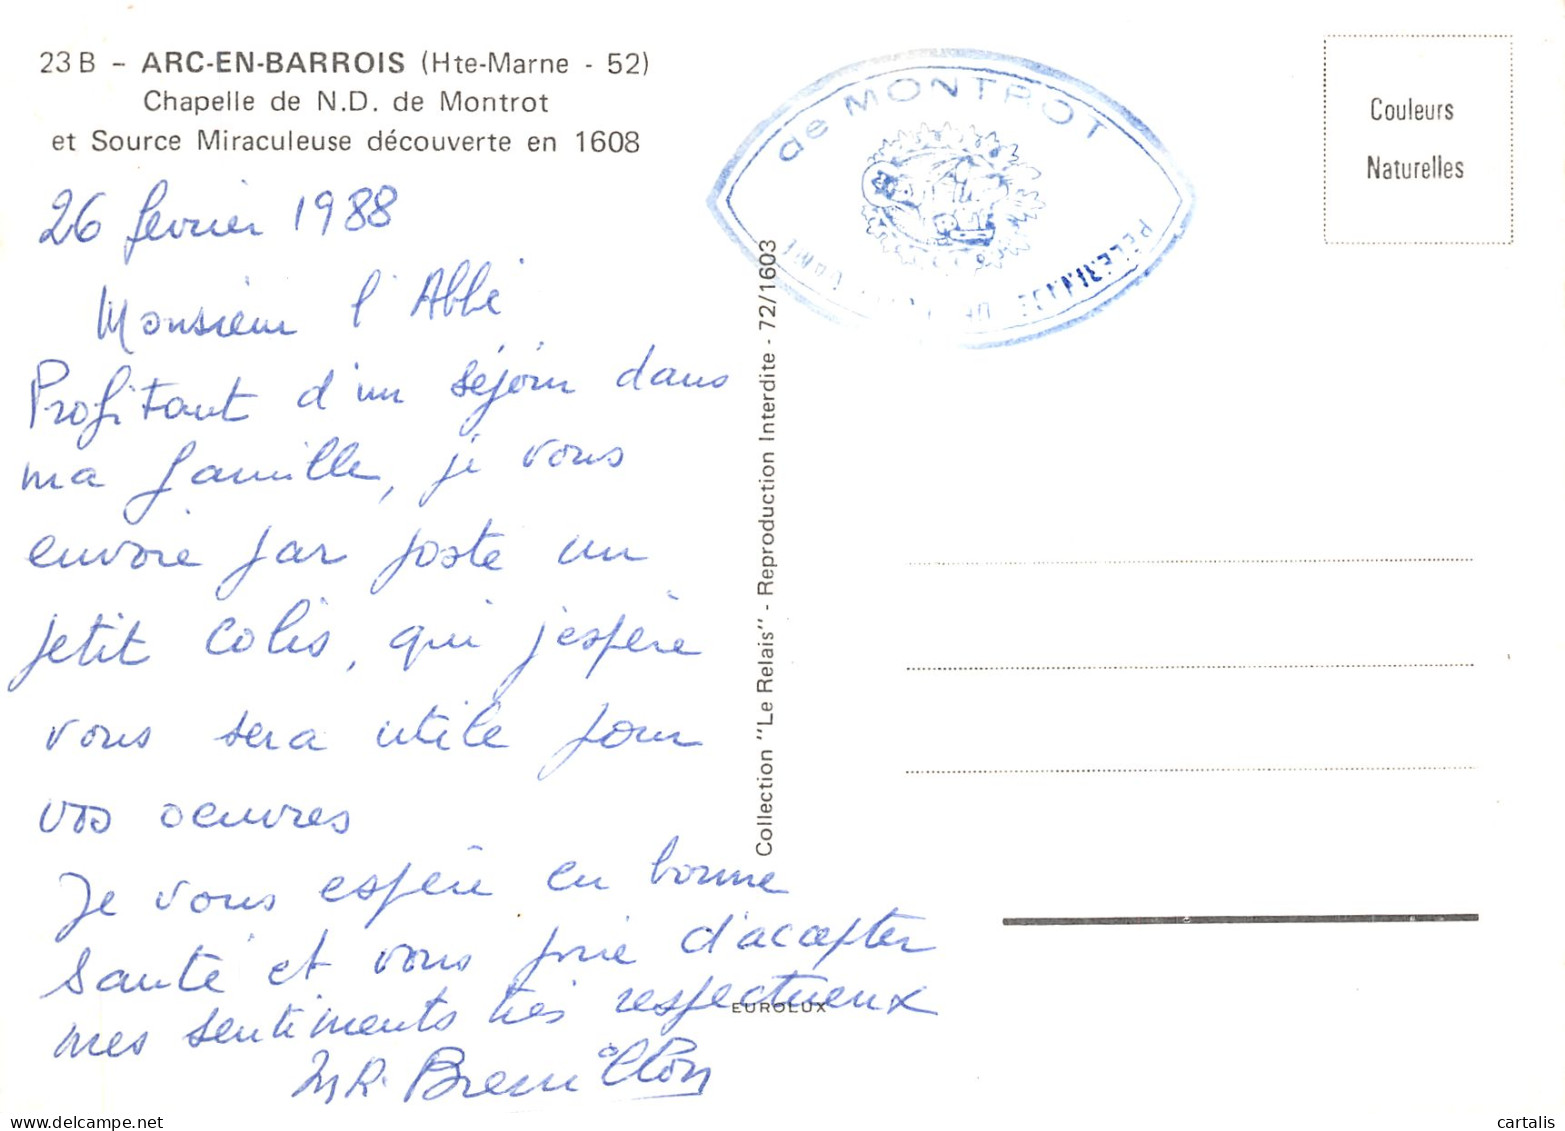 23 B - ARC-EN-BARROIS (Hte-Marne - 52)
Chapelle de N.D. de Montrot
et Source Miraculeuse découverte en 1608
26 février 1988
Monsieur l'Abbé
Profitant d'un séjour dans
ma famille, je vous
envoie par poste un
petit colis, qui j'espère
vous sera utile pour
vos oeuvres
Je vous espère en bonne
santé et vous prie d'accepter
mes sentiments très respectueux
de MONTROT
PELERINAGE
Couleurs
Naturelles
Collection "Le Relais" - Reproduction Interdite - 72/1603
EUROLUX
cartalis